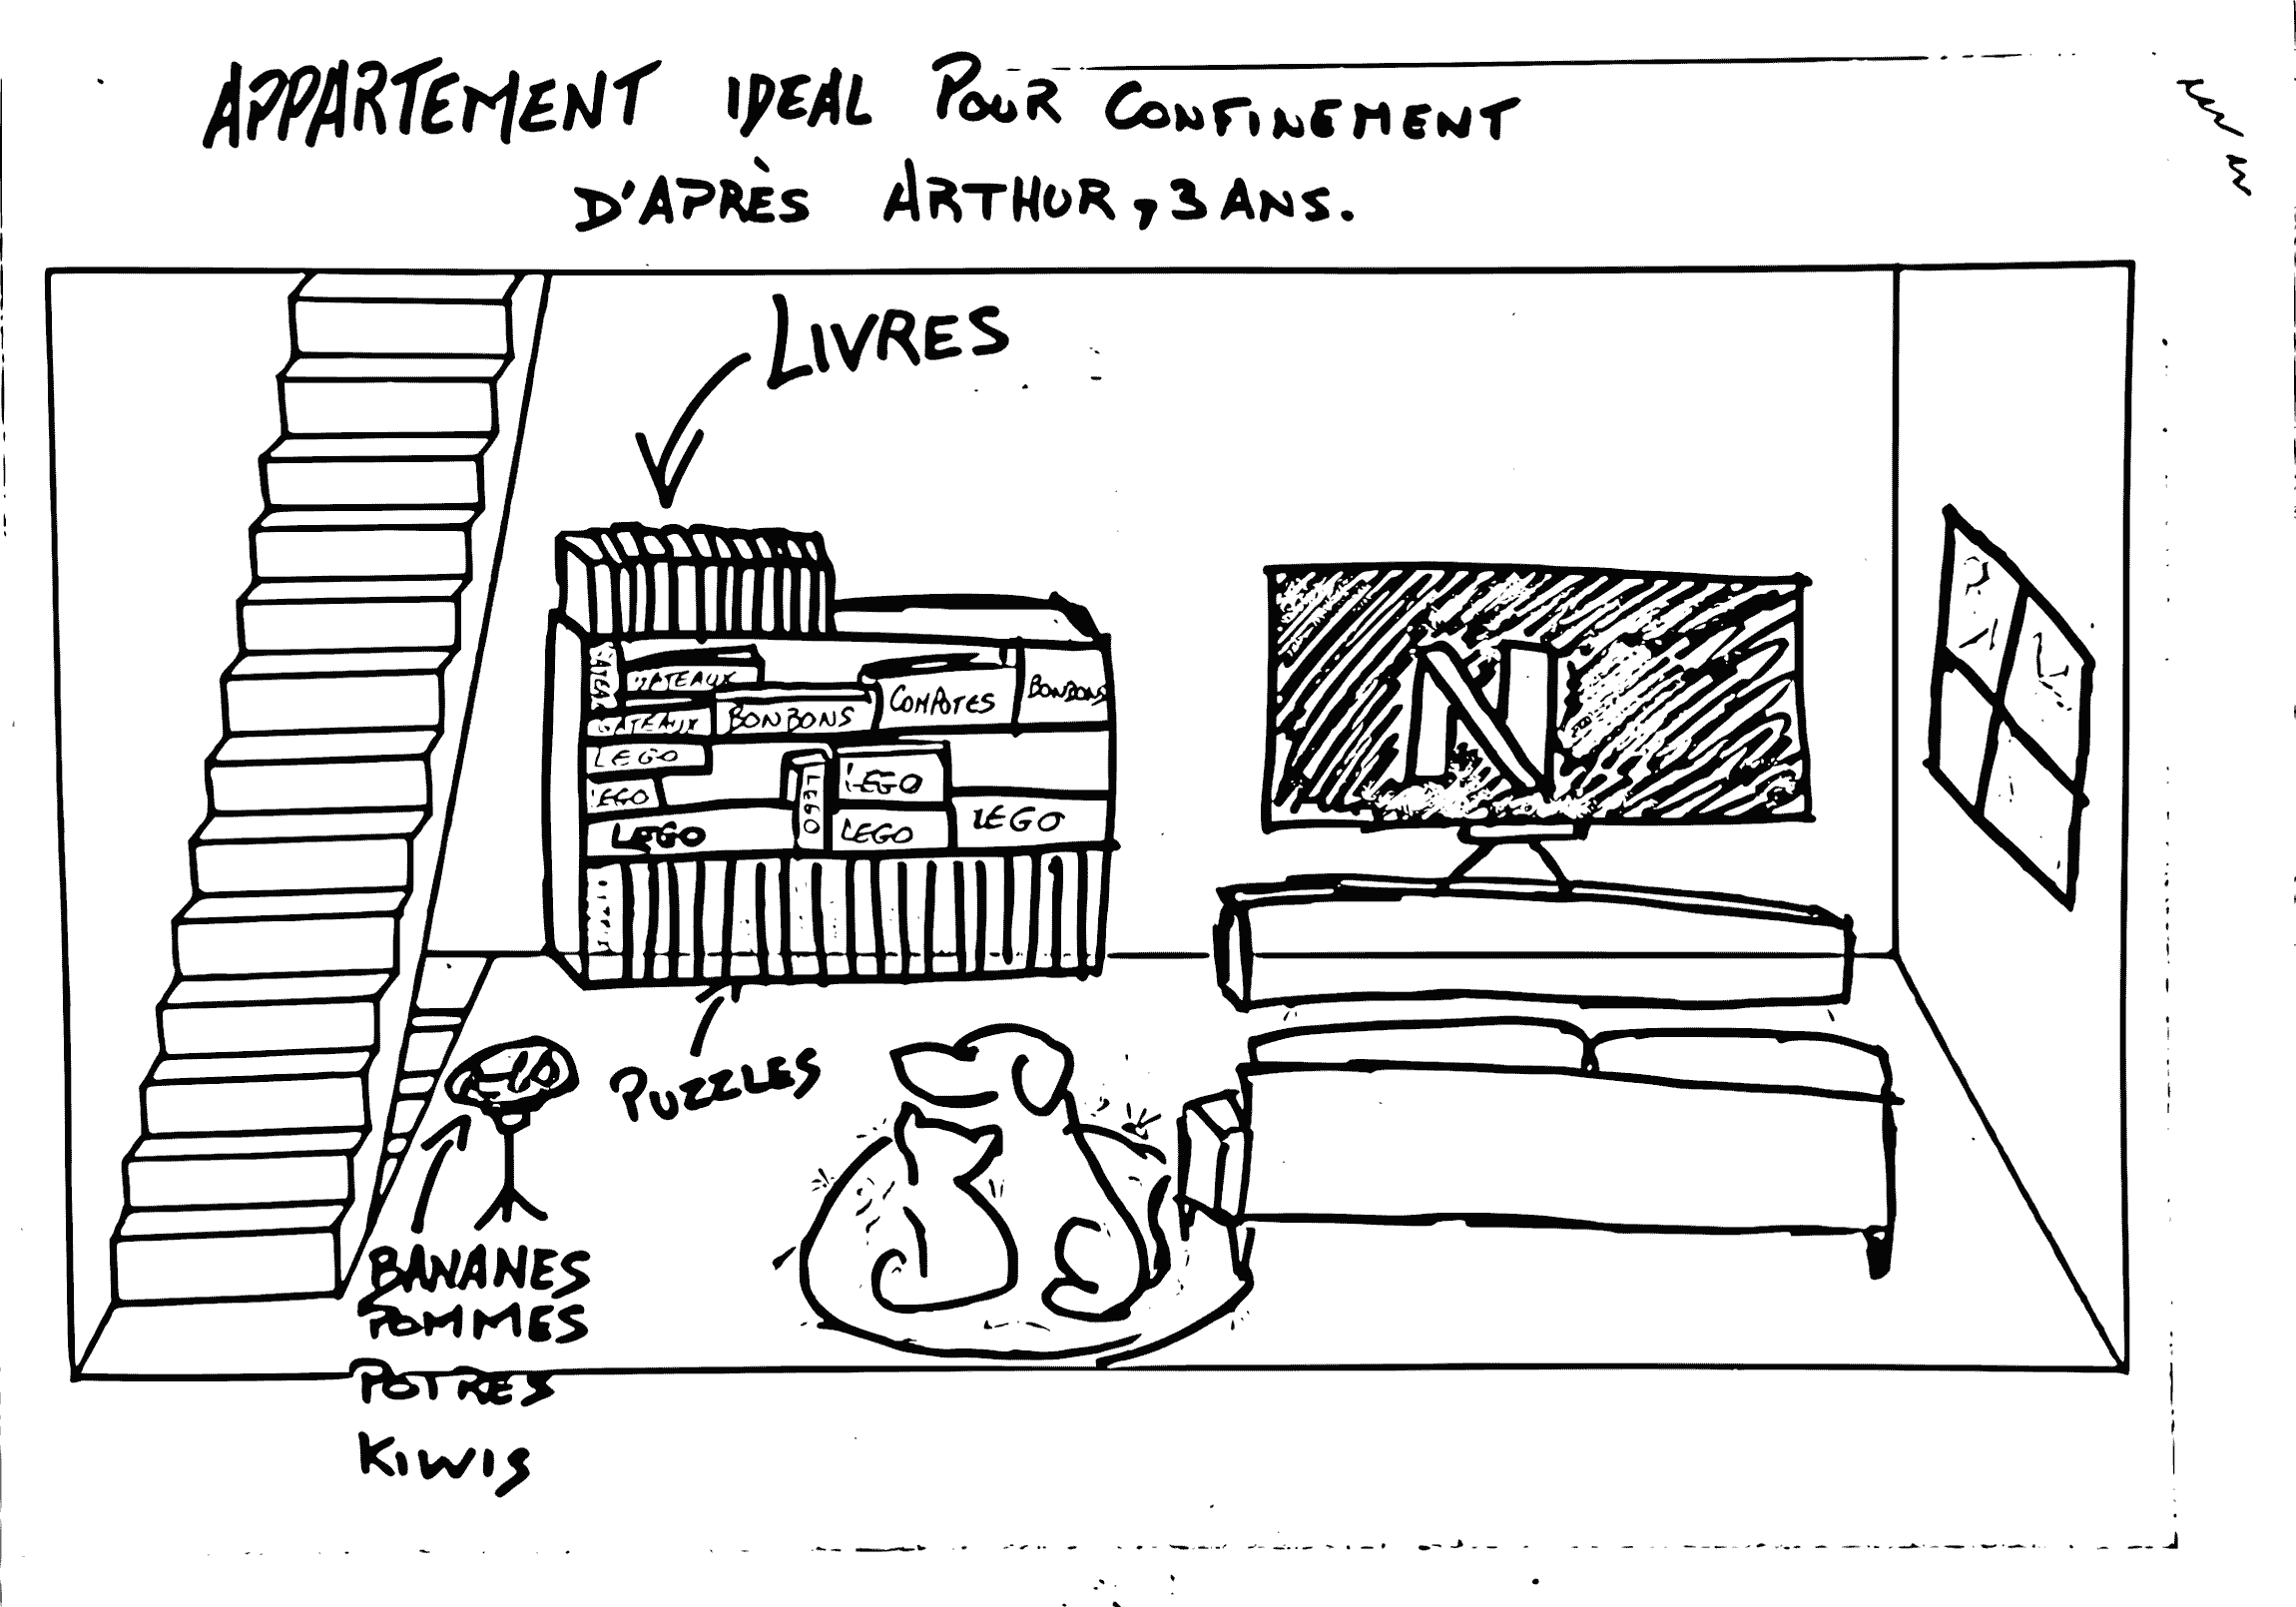 APPARTEMENT IDEAL POUR CONFINEMENT
D'APRÈS ARTHUR, 3 ANS.
LIVRES
GATEAUX
GATEAUX
BONBONS
COMPOTES
BONBONS
LEGO
LEGO
LEGO
LEGO
LEGO
LEGO
LEGO
N
PUZZLES
BANANES
POMMES
POIRES
KIWIS